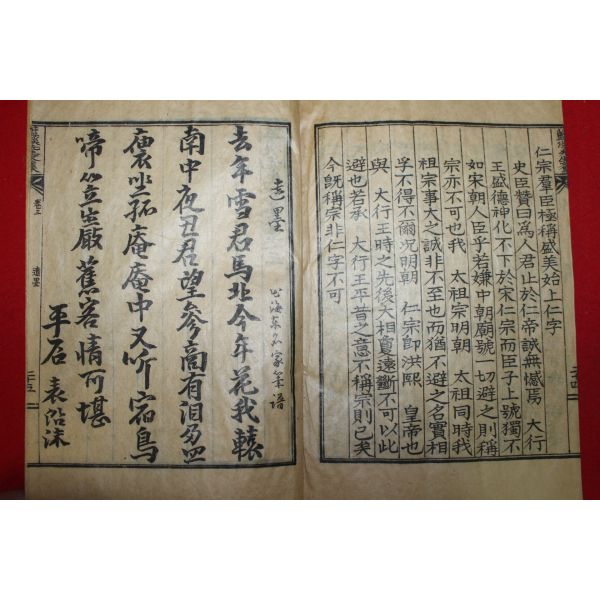 仁宗羣臣極稱盛美始上仁字
史臣贊曰爲人君止於仁帝誠無憾焉 大行
王盛德神化不下於宋仁宗而臣子上號獨不
如宋朝人臣乎若嫌中朝廟號一切避之則稱
宗亦不可也我 太祖宗明朝 太祖同時我
祖宗事大之誠非不至也而猶不避之名實相
孚不得不爾况明朝 仁宗卽洪熙 皇帝也
與 大行王時之先後大相敻遠斷不可以此
避也若承 大行王平昔之意不稱宗則已矣
今旣稱宗非仁字不可
遺墨 出海東名家筆譜
去年雪君馬北今年花我轅
南中夜丑君望參商有泪
裹坐孤庵庵中又听宿鳥
啼笠岩嚴舊客情可堪
平石 表沿沫
卷三
遺墨
二十五
二十四